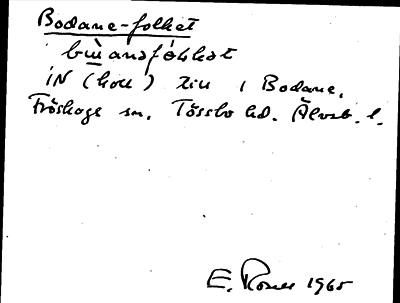 Bodane-folket
bẁansfóhkat
iN (koll) till i Bodane,
Fröskoge sn. Tössbo hd. Älvsb. l.
E. Rosell 1965